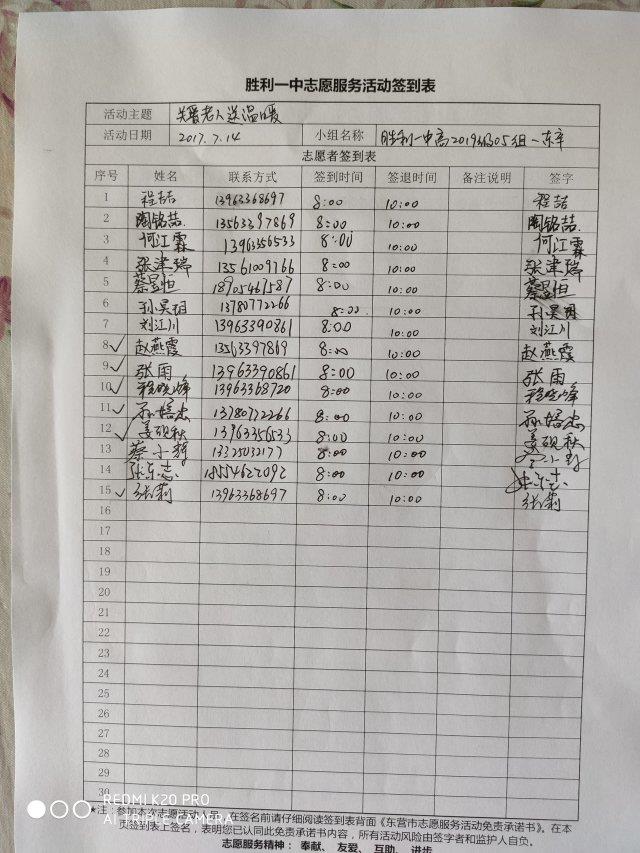 胜利一中志愿服务活动签到表
活动主题 关爱老人送温暖
活动日期 2017.7.14 小组名称 胜利一中高2019级05组-东辛
志愿者签到表
序号 姓名 联系方式 签到时间 签退时间 备注说明 签字
1 程喆 13963368697 8:00 10:00 程喆
2 陶铭喆 13563397869 8:00 10:00 陶铭喆.
3 何江霖 13963356533 8:00 10:00 何江霖
4 张津瑞 13561009766 8:00 10:00 张津瑞
5 蔡昱恒 18905467587 8:00 10:00 蔡昱恒
6 孙昊玥 13780772266 8:00 10:00 孙昊玥
7 刘江川 13963390861 8:00 10:00 刘江川
8 赵燕霞 13563397869 8:00 10:00 赵燕霞
9 张雨 13963390861 8:00 10:00 张雨
10 程晓峰 13963368720 8:00 10:00 程晓峰
11 13780772266 8:00 10:00
12 姜砚秋 13963356533 8:00 10:00 姜砚秋
13 蔡小静 13325032177 8:00 10:00
14 张东志 18554622092 8:00 10:00 张东志
15 张莉 13963368697 8:00 10:00 张莉
16
17
18
19
20
21
22
23
24
25
26
27
28
29
30
*注：参加本次志愿活动人员，在签名前请仔细阅读签到表背面《东营市志愿服务活动免责承诺书》。在本
页签到表上签名，表明您已认同此免责承诺书内容，所有活动风险由签字者和监护人自负。
志愿服务精神：奉献、友爱、互助、进步
REDMI K20 PRO
AI TRIPLE CAMERA